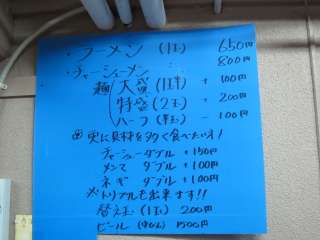 ・ラーメン (1玉) 650円
・チャーシューメン 800円
麺 大盛 (1玉半) + 100円
特盛 (2玉) + 200円
ハーフ (半玉) - 100円
実に具材を多く食べたい方!
チャーシューダブル +150円
メンマ ダブル +100円
ネギ ダブル +100円
※トリプルも出来ます!!
替え玉 (1玉) 200円
ビール (中びん) 500円